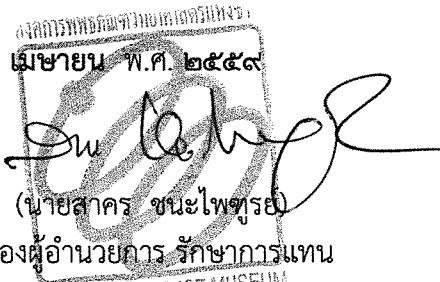 เมษายน พ.ศ. ๒๕๕๙
(นายสาคร ชนะไพฑูรย์)
องผู้อำนวยการ รักษาการแทน
MUSEUM